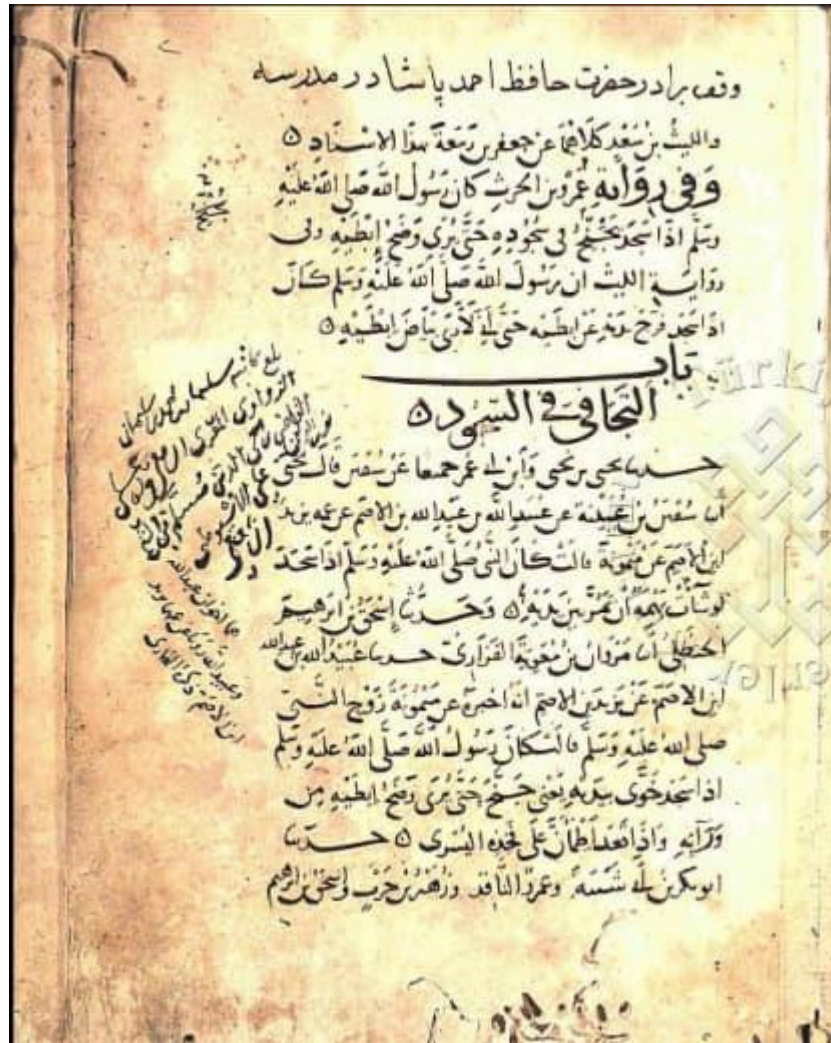 وقف برادر حضرت حافظ احمد پاشا در مدرسه
والليث بن سعد كلاهما عن جعفر بن ربيعة بهذا الاسناد ٥
وفي رواية عمرو بن الحرث كان رسول الله صلى الله عليه
وسلم اذا سجد يجنح في سجوده حتى يرى وضح ابطيه وفي
رواية الليث ان رسول الله صلى الله عليه وسلم كان
اذا سجد فرج يديه عن ابطيه حتى اني لأرى بياض ابطيه ٥
باب
التجافي في السجود ٥
حدثنا يحيى بن يحيى وابن ابي عمر جميعا عن سفين قال يحيى
أنا سفين بن عيينة عن عبيد الله بن عبد الله بن الاصم عن عمه يزيد
ابن الأصم عن ميمونة قالت كان النبي صلى الله عليه وسلم اذا سجد
لو شأت بهمة أن تمر بين يديه ٥ وحدثنا إسحق بن ابرهيم
الحنظلي أنا مروان بن معوية الفزاري حدثنا عبيد الله بن عبد الله
ابن الاصم عن يزيد بن الاصم انه اخبره عن ميمونة زوج النبي
صلى الله عليه وسلم قالت كان رسول الله صلى الله عليه وسلم
اذا سجد خوى بيديه يعني جنح حتى يرى وضح ابطيه من
ورآيه واذا قعد اطمأن على فخذه اليسرى ٥ حدثنا
ابو بكر بن ابي شيبة وعمرو الناقد وزهير بن حرب واسحق بن ابرهيم
Türki
erler